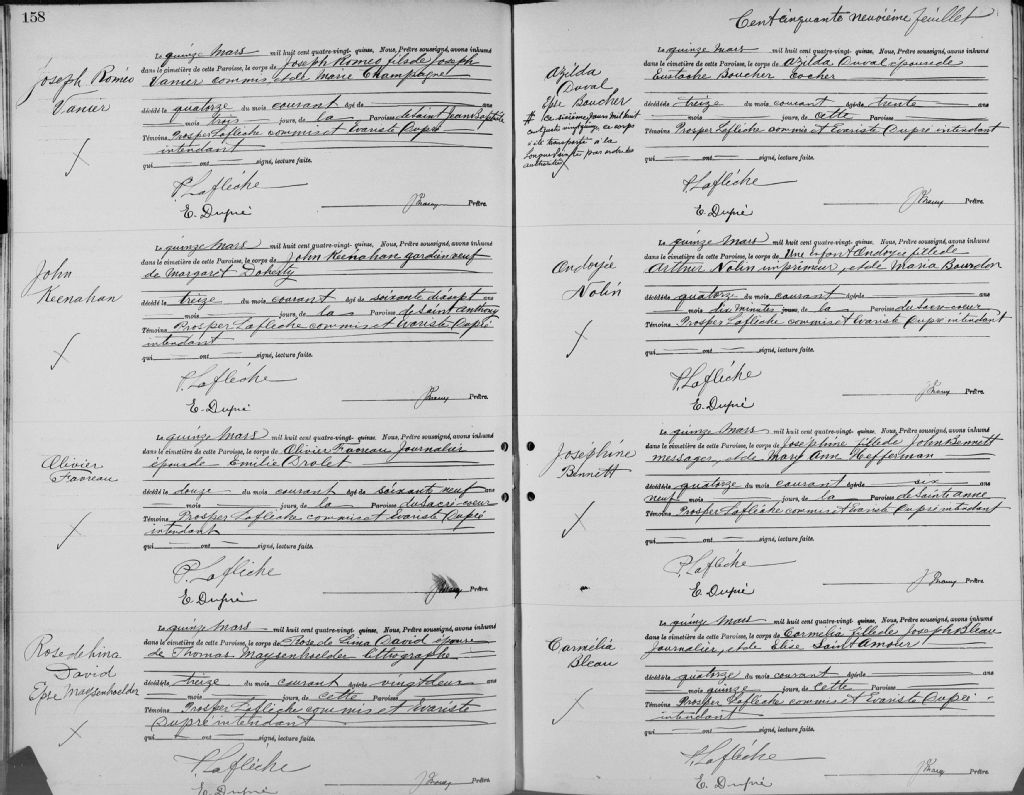 158
Joseph Roméo
Vanier
Le quinze Mars mil huit cent quatre-vingt-quinze. Nous, Prêtre soussigné, avons inhumé
dans le cimetière de cette Paroisse, le corps de Joseph Roméo fils de Joseph
Vanier commis et de Marie Champagne
décédé le quatorze du mois courant âgé de ans
mois trois jours, de la Paroisse de Saint Jean Baptiste
Témoins Prosper Laflèche commis et Evariste Dupré
intendant
qui ont signé, lecture faite.
P. Laflèche
E. Dupré
Prêtre.
John
Keenahan
Le quinze Mars mil huit cent quatre-vingt-quinze. Nous, Prêtre soussigné, avons inhumé
dans le cimetière de cette Paroisse, le corps de John Keenahan gardien veuf
de Margaret Doherty
décédé le treize du mois courant âgé de soixante dix sept ans
mois jours, de la Paroisse de Saint Anthony
Témoins Prosper Laflèche commis et Evariste Dupré
intendant
qui ont signé, lecture faite.
P. Laflèche
E. Dupré
Prêtre.
Olivier
Favreau
Le quinze Mars mil huit cent quatre-vingt-quinze. Nous, Prêtre soussigné, avons inhumé
dans le cimetière de cette Paroisse, le corps de Olivier Favreau Journalier
époux de Emilie Drolet
décédé le douze du mois courant âgé de soixante neuf ans
mois jours, de la Paroisse du Sacré-coeur
Témoins Prosper Laflèche commis et Evariste Dupré
intendant
qui ont signé, lecture faite.
P. Laflèche
E. Dupré
Prêtre.
Rose de Lima
David
Epse Maysenhoelder
Le quinze Mars mil huit cent quatre-vingt-quinze. Nous, Prêtre soussigné, avons inhumé
dans le cimetière de cette Paroisse, le corps de Rose de Lima David épouse
de Thomas Maysenhoelder lithographe
décédé le treize du mois courant âgé de vingt deux ans
mois jours, de cette Paroisse
Témoins Prosper Laflèche commis et Evariste
Dupré intendant
qui ont signé, lecture faite.
P. Laflèche
E. Dupré
Prêtre.
Cent cinquante neuvième feuillet
Azilda
Duval
Epse Boucher
# Ce sixième jours mil huit
cent quatre vingt quinze, ce corps
a été transporté a la
Longue Pointe par ordre des
autorités
Le quinze Mars mil huit cent quatre-vingt-quinze. Nous, Prêtre soussigné, avons inhumé
dans le cimetière de cette Paroisse, le corps de Azilda Duval épouse de
Eustache Boucher Cocher
décédé le treize du mois courant âgé de trente ans
mois jours, de cette Paroisse
Témoins Prosper Laflèche commis et Evariste Dupré intendant
qui ont signé, lecture faite.
P. Laflèche
E. Dupré
Prêtre.
Ondoyée
Nolin
Le quinze Mars mil huit cent quatre-vingt-quinze. Nous, Prêtre soussigné, avons inhumé
dans le cimetière de cette Paroisse, le corps de Une enfant Ondoyée fille de
Arthur Nolin imprimeur, et de Maria Bourdon
décédé le quatorze du mois courant âgé de ans
mois dix minutes jours, de la Paroisse du Sacré-coeur
Témoins Prosper Laflèche commis et Evariste Dupré intendant
qui ont signé, lecture faite.
P. Laflèche
E. Dupré
Prêtre.
Joséphine
Bennett
Le quinze Mars mil huit cent quatre-vingt-quinze. Nous, Prêtre soussigné, avons inhumé
dans le cimetière de cette Paroisse, le corps de Joséphine fille de John Bennett
messager, et de Mary Anne Hefferman
décédé le quatorze du mois courant âgé de six ans
neuf mois jours, de la Paroisse de Sainte Anne
Témoins Prosper Laflèche commis et Evariste Dupré intendant
qui ont signé, lecture faite.
P. Laflèche
E. Dupré
Prêtre.
Carmélia
Bleau
Le quinze Mars mil huit cent quatre-vingt-quinze. Nous, Prêtre soussigné, avons inhumé
dans le cimetière de cette Paroisse, le corps de Cormélia fille de Joseph Bleau
Journalier, et de Elise Saint Amour
décédé le quatorze du mois courant âgé de ans
mois quinze jours, de cette Paroisse
Témoins Prosper Laflèche commis et Evariste Dupré
intendant
qui ont signé, lecture faite.
P. Laflèche
E. Dupré
Prêtre.